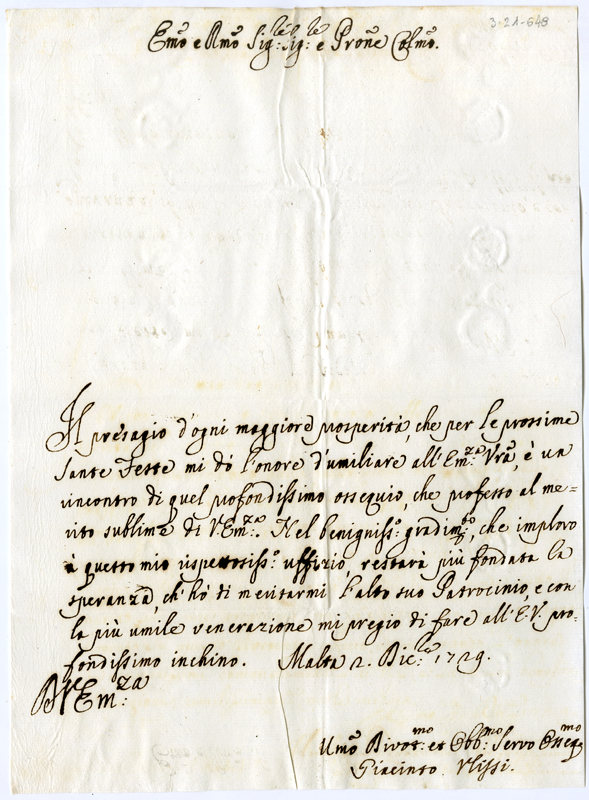 3-21-648
Emo e Rmo Sig:re Sig:re e Prone Colmo.
Il presagio d'ogni maggiore prosperità, che per le prossime
Sante Feste mi dó l'onore d'umiliare all'Em:za Vra, è un
rincontro di quel profondissimo ossequio, che professo al me=
rito sublime di V. Em:za. Nel benigniss:o gradim:to, che imploro
à questo mio rispettosiss:o uffizio, restarà più fondata la
speranza, ch'hó di meritarmi l'alto suo Patrocinio, e con
la più umile venerazione mi pregio di fare all'E.V. pro-
fondissimo inchino. Malta 2. Dic:re 1729.
Em:za
Umo Divot:mo et Obb:mo Servo Osseq:mo
Giacinto Ulissi.